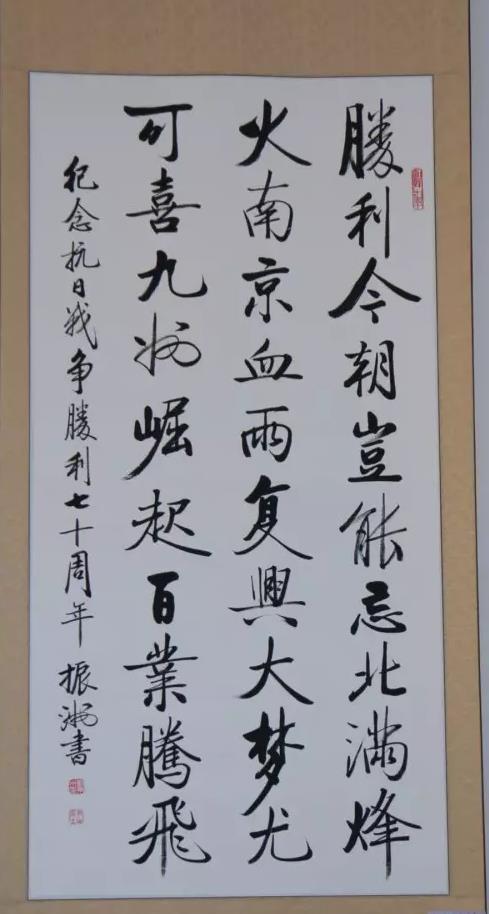 勝利今朝豈能忘北滿烽
火南京血雨复興大梦尤
可喜九州崛起百業騰飛
纪念抗日战争勝利七十周年 振 書